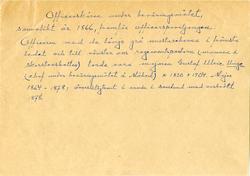 Officerskåren under beväringsmötet,
sannolikt år 1866, framför officerspaviljongen.
Officeren med de långa grå mustascherna i främsta
ledet och till vänster om regementschefen (mannen i
) torde vara majoren Gustaf Ulric
(chef under beväringsmötet å ) * 1820 † 1904. Major
1864 - 1878; överstelöjtnant i armén i samband med avskedet
1878.